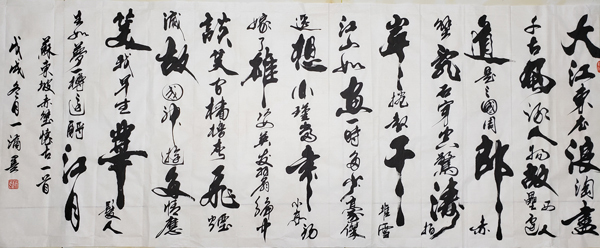 大江東去浪淘盡
千古風流人物故壘西邊人
道是三國周郎赤
壁亂石穿空驚濤拍
岸捲起千堆雪
江山如畫一時多少豪傑
遙想公瑾當年小喬初
嫁了雄姿英發羽扇綸巾
談笑間檣櫓灰飛煙
滅故國神遊多情應
笑我早生華髮
人生如夢一樽還酹江月
蘇東坡赤壁懷古一首
戊戌冬月一浦書